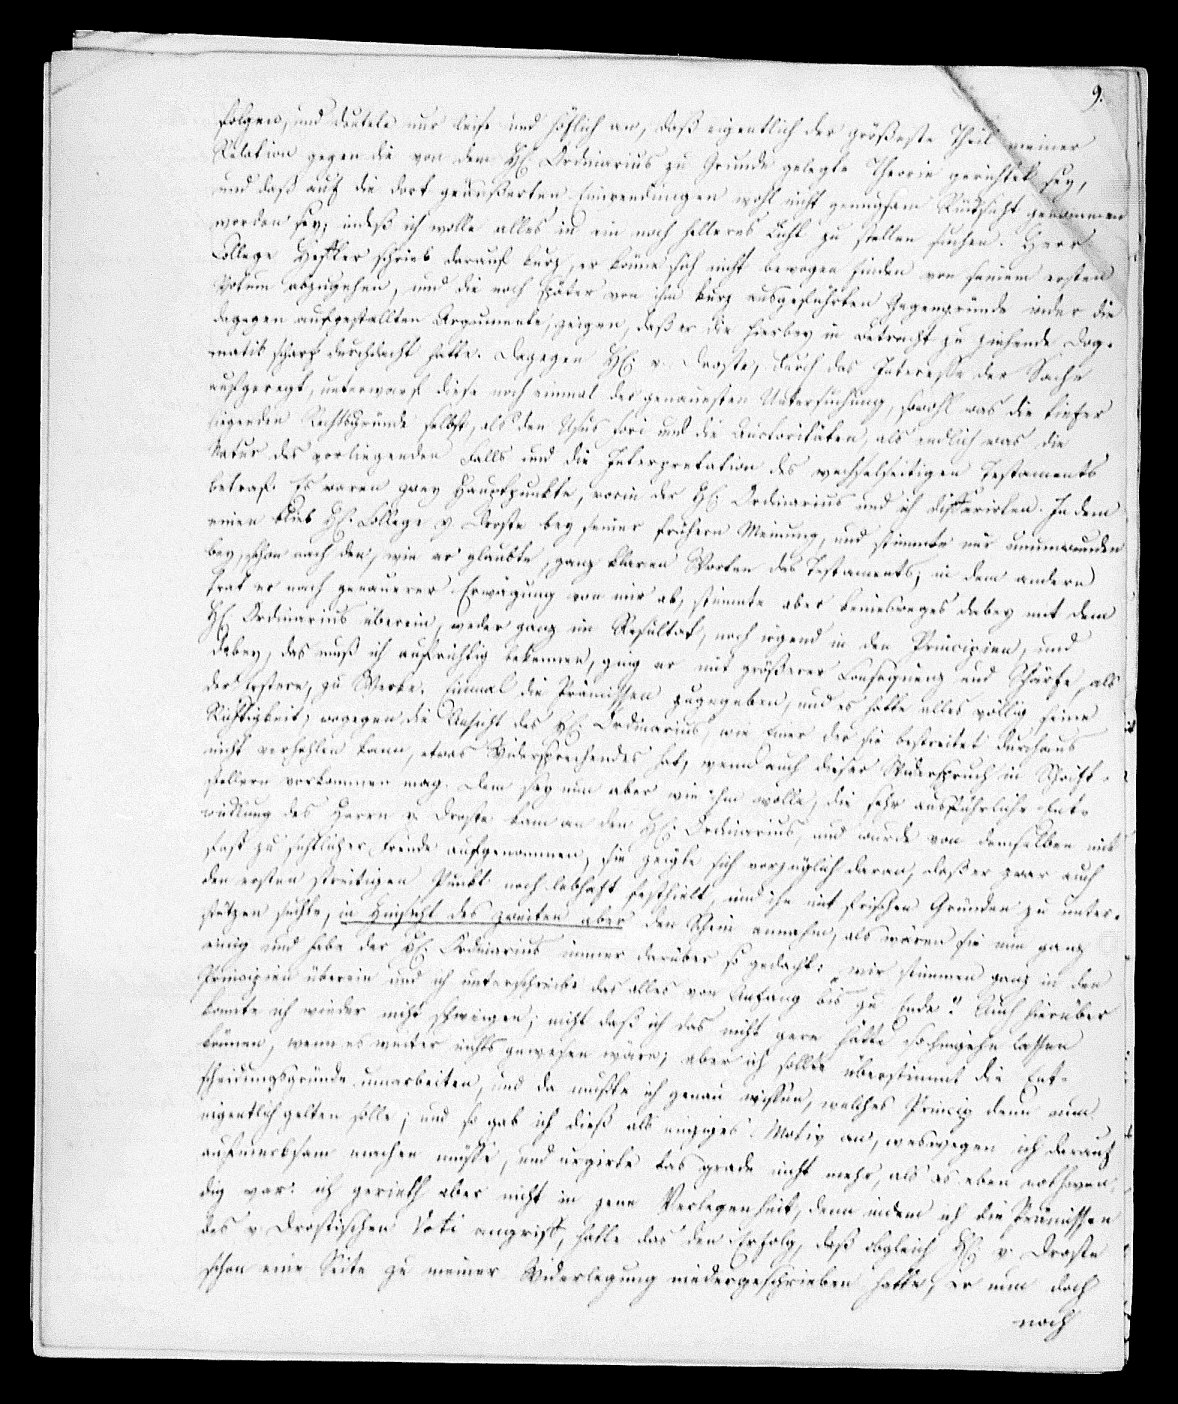 9.
folgen, und deutete nur leise und höflich an, daß eigentlich der größeste Theil meiner
Relation gegen die von dem H. Ordinarius zu Grunde gelegte Theorie gerichtet sey,
und daß auf die dort geäußerten Einwendungen wohl nicht genugsam Rücksicht genommen
worden sey; indeß ich wolle alles in ein noch helleres Licht zu stellen suchen. Herr
College Heffter schrieb darauf kurz, er könne sich nicht bewogen finden von seinem ersten
Votum abzugehen, und die noch später von ihm kurz ausgeführten Gegengründe wider die
dagegen aufgestellten Argumente, zeigen, daß er die hierbey in Betracht zu ziehende Dog-
matik scharf durchdacht hatte. Dagegen H. v. Droste, durch das Interesse der Sache
aufgeregt, unterwarf diese noch einmal der genauesten Untersuchung, sowohl was die tiefer
liegenden Rechtsgründe selbst, als den Usus fori und die Auctoritäten, als endlich was die
Natur des vorliegenden Falls und die Interpretation des wechselseitigen Testaments
betraf. Es waren zwey Hauptpunkte, worin der H. Ordinarius und ich differirten. In dem
einen blieb H. College v Droste bey seiner frühern Meinung, und stimmte mir unumwunden
bey, schon nach den, wie er glaubte, ganz klaren Worten des Testaments; in dem andern
trat er nach genauerer Erwägung von mir ab, stimmte aber keinesweges dabey mit dem
H. Ordinarius überein, weder ganz im Resultat, noch irgend in den Principien, und
dabey, das muß ich aufrichtig bekennen, ging er mit größerer Consequenz und Schärfe, als
der letztere, zu Werke. Einmal die Prämissen zugegeben, und es hatte alles völlig seine
Richtigkeit, wogegen die Ansicht des H. Ordinarius, wie einer der sie bestreitet durchaus
nicht verhehlen kann, etwas Widersprechendes hat, wenn auch dieser Widerspruch in Schrift-
stellern vorkommen mag. Dem sey nun aber wie ihm wolle, die sehr ausführliche Ent-
wicklung des Herrn v. Droste kam an den H. Ordinarius, und wurde von demselben mit
fast zu sichtlicher Freude aufgenommen, sie zeigte sich vorzüglich daran, daß er zwar auch
den ersten streitigen Punkt noch lebhaft festhielt, und ihn mit frischen Gründen zu unter-
stützen suchte, in Hinsicht des zweiten aber den Schein annahm, als wären sie nun ganz
einig und habe der H. Ordinarius immer darüber so gedacht: „wir stimmen ganz in den
Principien überein und ich unterschreibe das alles von Anfang bis zu Ende“. Auch hierüber
konnte ich wieder nicht schweigen; nicht daß ich das nicht gern hätte so hingehn lassen
können, wenn es weiter nichts gewesen wäre; aber ich sollte überstimmt die Ent-
scheidungsgründe umarbeiten, und da mußte ich genau wissen, welches Princip denn nun
eigentlich gelten solle; und so gab ich dieß als einziges Motiv an, weswegen ich darauf
aufmerksam machen müßte, und urgirte das grade nicht mehr, als es eben nothwen-
dig war: ich gerieth aber nicht in jene Verlegenheit, denn indem ich die Prämissen
des v. Drostischen Voti angriff, hatte das den Erfolg, daß obgleich H. v. Droste
schon eine Seite zu meiner Widerlegung niedergeschrieben hatte, er nun doch
noch